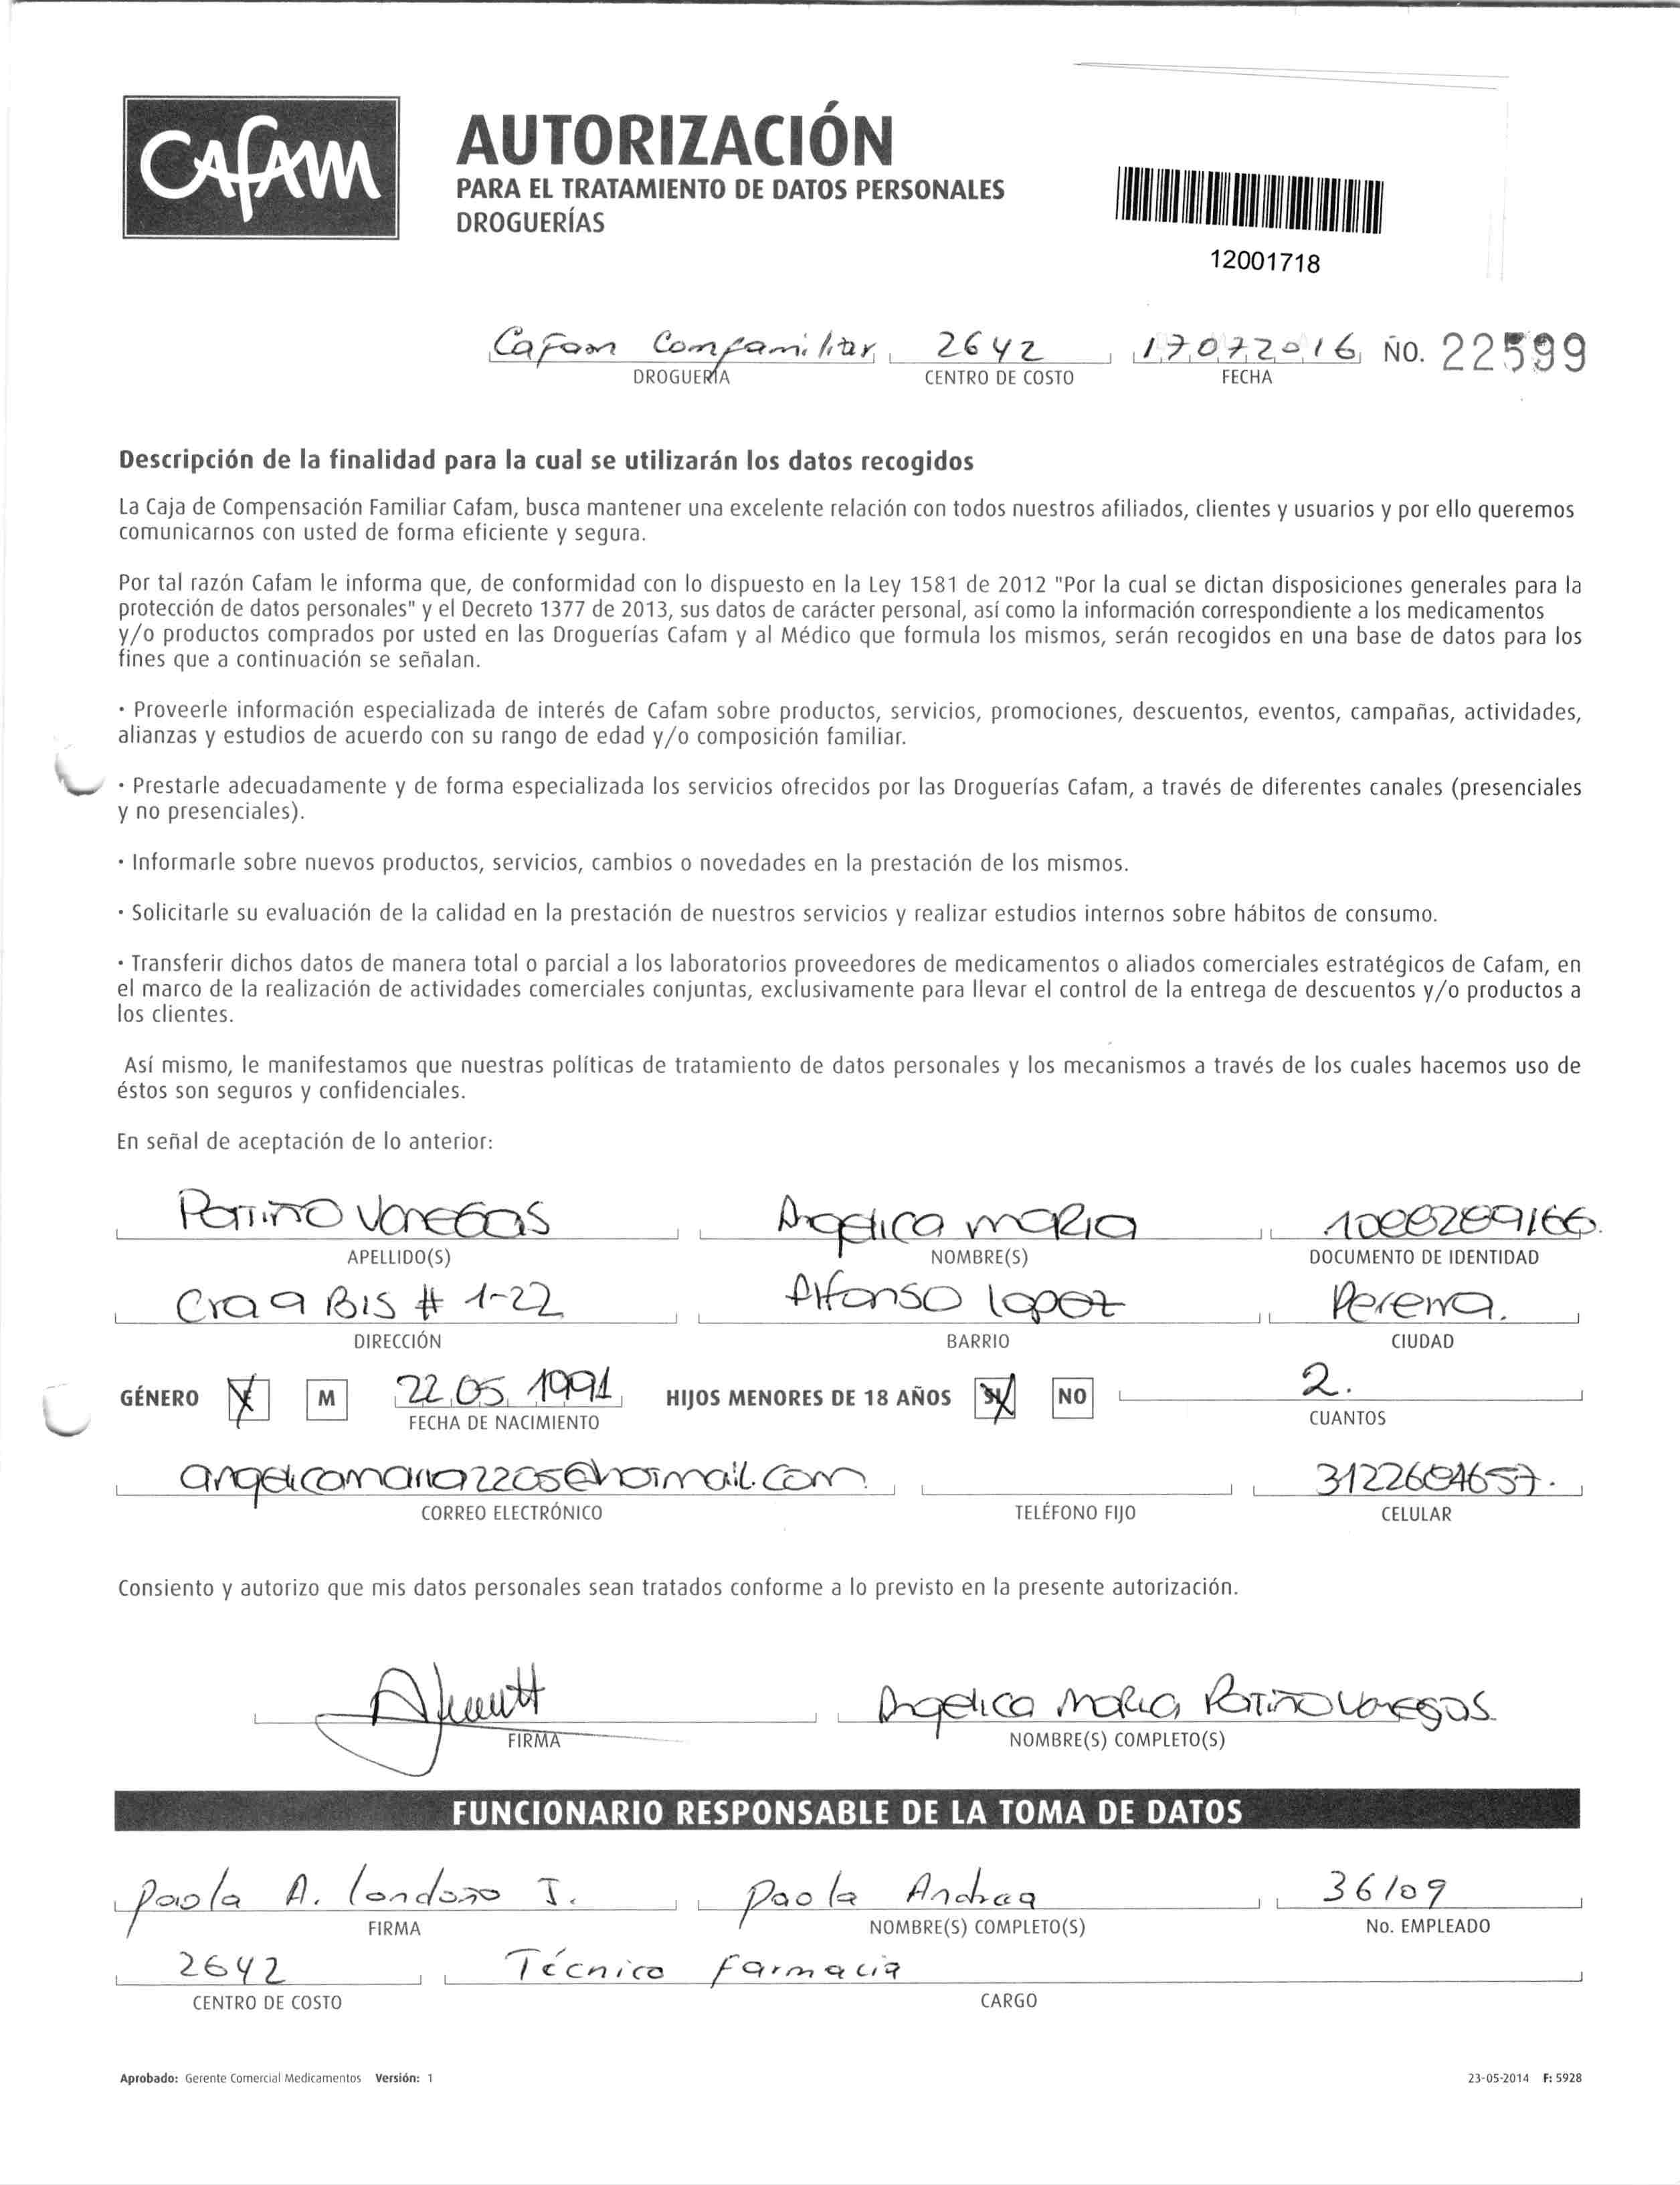 CAFAM
AUTORIZACIÓN
PARA EL TRATAMIENTO DE DATOS PERSONALES
DROGUERÍAS
12001718
Cafam Comfamiliar 2642 17072016 NO. 22599
DROGUERÍA CENTRO DE COSTO FECHA
Descripción de la finalidad para la cual se utilizarán los datos recogidos
La Caja de Compensación Familiar Cafam, busca mantener una excelente relación con todos nuestros afiliados, clientes y usuarios y por ello queremos
comunicarnos con usted de forma eficiente y segura.
Por tal razón Cafam le informa que, de conformidad con lo dispuesto en la Ley 1581 de 2012 "Por la cual se dictan disposiciones generales para la
protección de datos personales" y el Decreto 1377 de 2013, sus datos de carácter personal, así como la información correspondiente a los medicamentos
y/o productos comprados por usted en las Droguerías Cafam y al Médico que formula los mismos, serán recogidos en una base de datos para los
fines que a continuación se señalan.
· Proveerle información especializada de interés de Cafam sobre productos, servicios, promociones, descuentos, eventos, campañas, actividades,
alianzas y estudios de acuerdo con su rango de edad y/o composición familiar.
· Prestarle adecuadamente y de forma especializada los servicios ofrecidos por las Droguerías Cafam, a través de diferentes canales (presenciales
y no presenciales).
· Informarle sobre nuevos productos, servicios, cambios o novedades en la prestación de los mismos.
· Solicitarle su evaluación de la calidad en la prestación de nuestros servicios y realizar estudios internos sobre hábitos de consumo.
· Transferir dichos datos de manera total o parcial a los laboratorios proveedores de medicamentos o aliados comerciales estratégicos de Cafam, en
el marco de la realización de actividades comerciales conjuntas, exclusivamente para llevar el control de la entrega de descuentos y/o productos a
los clientes.
Así mismo, le manifestamos que nuestras políticas de tratamiento de datos personales y los mecanismos a través de los cuales hacemos uso de
éstos son seguros y confidenciales.
En señal de aceptación de lo anterior:
Patiño Vanegas Angelica maria
APELLIDO(S) NOMBRE(S) DOCUMENTO DE IDENTIDAD
Cra 9 Bis # 1-22 Alfonso lopez Pereira.
DIRECCIÓN BARRIO CIUDAD
GÉNERO F M 22 05 1991 HIJOS MENORES DE 18 AÑOS SI NO 2.
FECHA DE NACIMIENTO CUANTOS
angelicamaria2205@hotmail.com 3122604657.
CORREO ELECTRÓNICO TELÉFONO FIJO CELULAR
Consiento y autorizo que mis datos personales sean tratados conforme a lo previsto en la presente autorización.
Angelica Maria Patiño Vanegas.
FIRMA NOMBRE(S) COMPLETO(S)
FUNCIONARIO RESPONSABLE DE LA TOMA DE DATOS
Paola A. Londoño J. Paola Andrea 36109
FIRMA NOMBRE(S) COMPLETO(S) No. EMPLEADO
2642 Técnico Farmacia
CENTRO DE COSTO CARGO
Aprobado: Gerente Comercial Medicamentos Versión: 1 23-05-2014 F: 5928